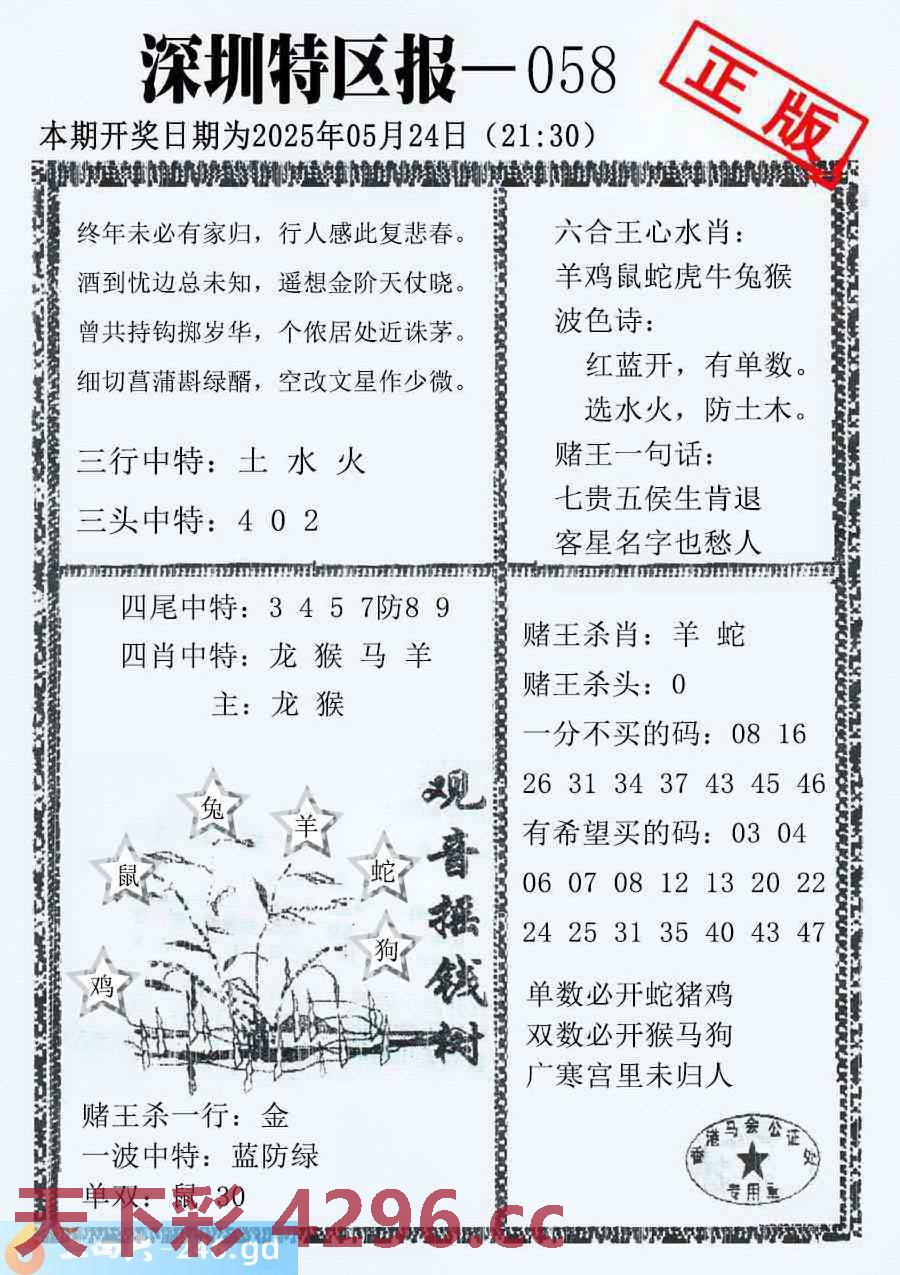 深圳特区报—058
正版
本期开奖日期为2025年05月24日（21:30）
终年未必有家归，行人感此复悲春。
酒到忧边总未知，遥想金阶天仗晓。
曾共持钩掷岁华，个侬居处近诛茅。
细切菖蒲斟绿醑，空改文星作少微。
三行中特：土 水 火
三头中特：4 0 2
六合王心水肖：
羊鸡鼠蛇虎牛兔猴
波色诗：
红蓝开，有单数。
选水火，防土木。
赌王一句话：
七贵五侯生肯退
客星名字也愁人
四尾中特：3 4 5 7防8 9
四肖中特：龙 猴 马 羊
主：龙 猴
兔
羊
鼠
蛇
狗
鸡
观音摇钱树
赌王杀一行：金
一波中特：蓝防绿
单双：鼠 30
赌王杀肖：羊 蛇
赌王杀头：0
一分不买的码：08 16
26 31 34 37 43 45 46
有希望买的码：03 04
06 07 08 12 13 20 22
24 25 31 35 40 43 47
单数必开蛇猪鸡
双数必开猴马狗
广寒宫里未归人
香港马会公证处
专用章
天下彩 4296.cc